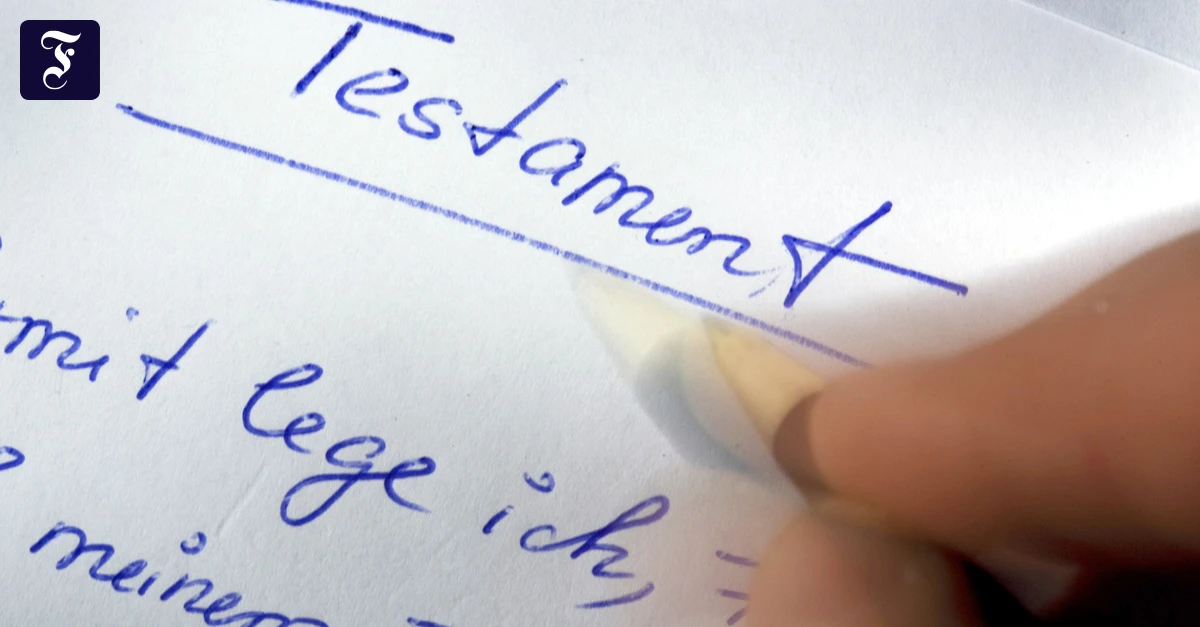 F
Testament
mit lege ich,
meinem